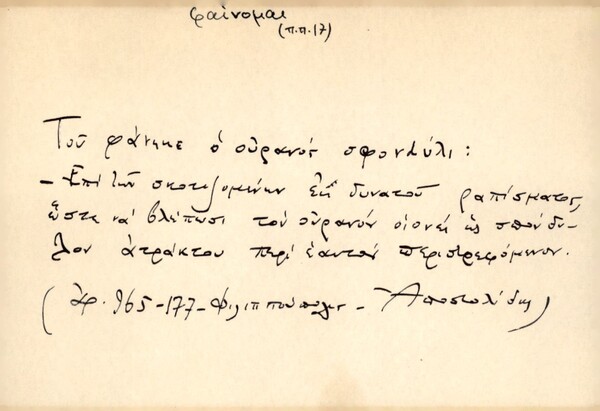 φαίνομαι
(π.π.17)
Τοῦ φάνηκε ὁ οὐρανός σφονδύλι:
- Ἐπί τῶν σκοτιζομένων ἐκ δυνατοῦ ραπίσματος,
ὥστε νά βλέπωσι τόν οὐρανόν οἱονεί ὡς σπόνδυ-
λον ἀτράκτου περί ἑαυτόν περιστρεφόμενον.
(ἀρ. 965-177-Φιλιππούπολις - Ἀποστολίδης)